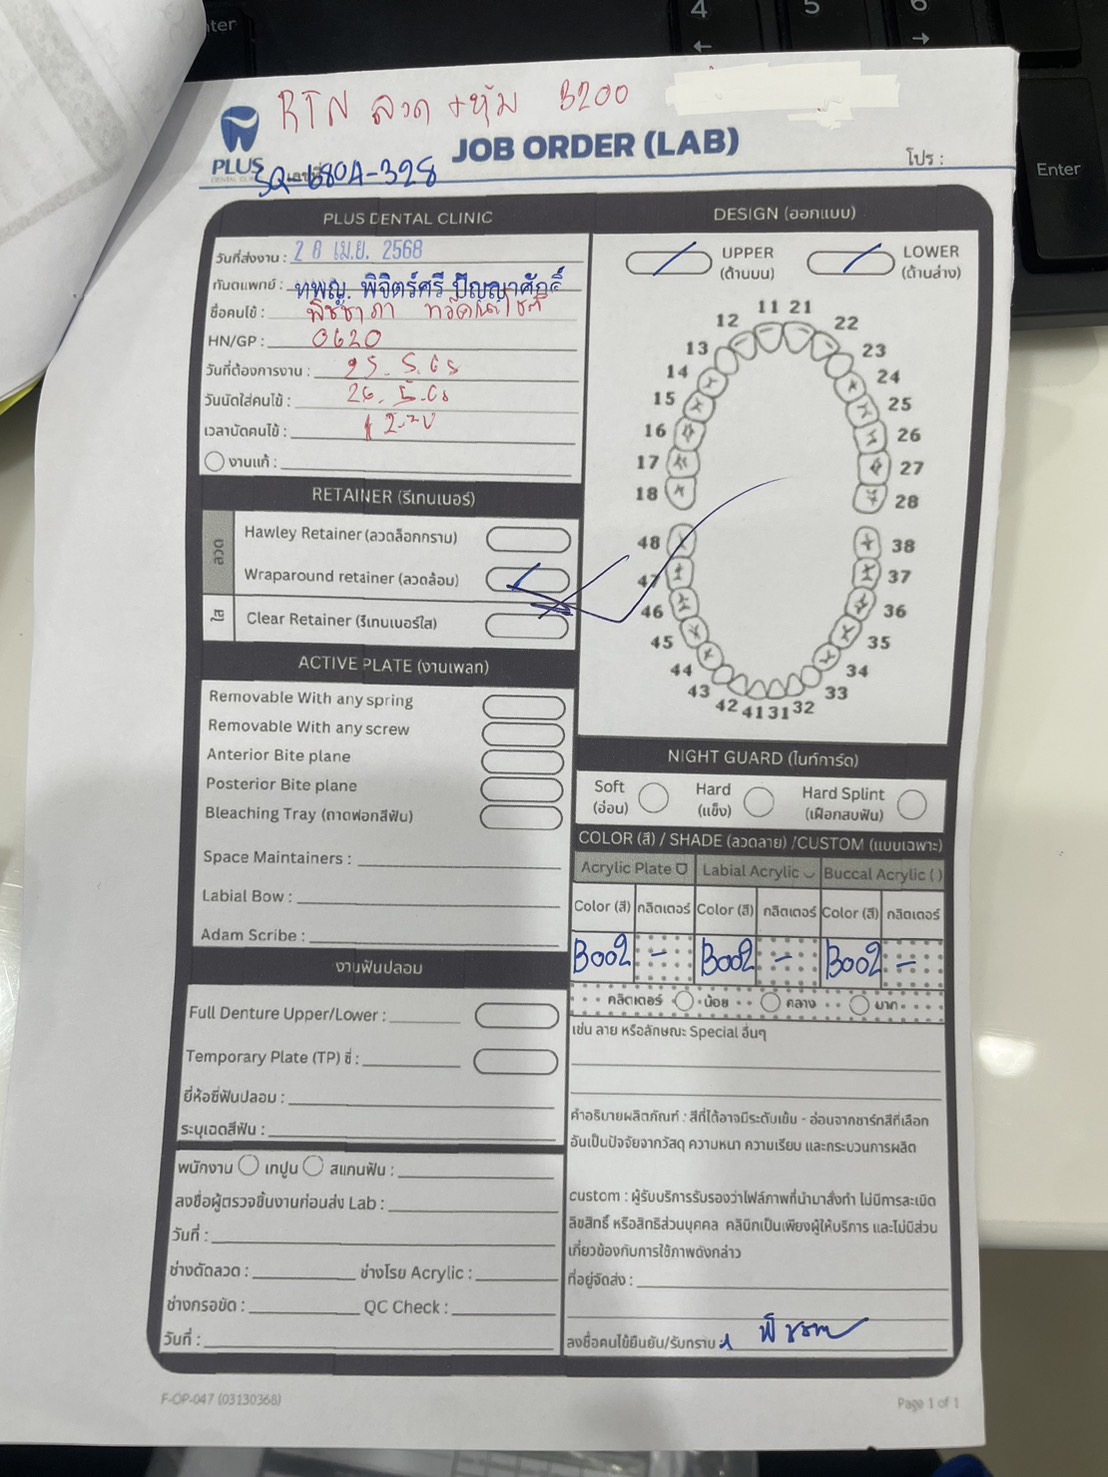 RTN ลวด +หุ้ม 3200
PLUS
DENTAL CLINIC
JOB ORDER (LAB)
โปร :
เลขที่ SQ-680A-328
PLUS DENTAL CLINIC
วันที่ส่งงาน : 28 เม.ย. 2568
ทันตแพทย์ : ทพญ. พิจิตร์ศรี ปัญญาศักดิ์
ชื่อคนไข้ : พิชชาภา
HN/GP : 0620
วันที่ต้องการงาน : 25. 5. 68
วันนัดใส่คนไข้ : 26. 5. 68
เวลานัดคนไข้ :
งานแก้ :
RETAINER (รีเทนเนอร์)
ลวด
Hawley Retainer (ลวดล็อกกราม)
Wraparound retainer (ลวดล้อม)
ใส
Clear Retainer (รีเทนเนอร์ใส)
ACTIVE PLATE (งานเพลท)
Removable With any spring
Removable With any screw
Anterior Bite plane
Posterior Bite plane
Bleaching Tray (ถาดฟอกสีฟัน)
Space Maintainers :
Labial Bow :
Adam Scribe :
งานฟันปลอม
Full Denture Upper/Lower :
Temporary Plate (TP) ซี่ :
ยี่ห้อซี่ฟันปลอม :
ระบุเฉดสีฟัน :
พนักงาน เทปูน สแกนฟัน :
ลงชื่อผู้ตรวจชิ้นงานก่อนส่ง Lab :
วันที่ :
ช่างดัดลวด : ช่างโรย Acrylic :
ช่างกรอขัด : QC Check :
วันที่ :
DESIGN (ออกแบบ)
UPPER LOWER
(ด้านบน) (ด้านล่าง)
11 21
12 22
13 23
14 24
15 25
16 26
17 27
18 28
48 38
47 37
46 36
45 35
44 34
43 33
42 41 31 32
NIGHT GUARD (ไนท์การ์ด)
Soft Hard Hard Splint
(อ่อน) (แข็ง) (เฝือกสบฟัน)
COLOR (สี) / SHADE (ลวดลาย) /CUSTOM (แบบเฉพาะ)
Acrylic Plate Labial Acrylic Buccal Acrylic ( )
Color (สี) กลิตเตอร์ Color (สี) กลิตเตอร์ Color (สี) กลิตเตอร์
B002 - B002 - B002 -
กลิตเตอร์ น้อย กลาง มาก
เช่น ลาย หรือลักษณะ Special อื่นๆ
คำอธิบายผลิตภัณฑ์ : สีที่ได้อาจมีระดับเข้ม - อ่อนจากชาร์ทสีที่เลือก
อันเป็นปัจจัยจากวัสดุ ความหนา ความเรียบ และกระบวนการผลิต
custom : ผู้รับบริการรับรองว่าไฟล์ภาพที่นำมาสั่งทำ ไม่มีการละเมิด
ลิขสิทธิ์ หรือสิทธิส่วนบุคคล คลินิกเป็นเพียงผู้ให้บริการ และไม่มีส่วน
เกี่ยวข้องกับการใช้ภาพดังกล่าว
ที่อยู่จัดส่ง :
ลงชื่อคนไข้ยืนยัน/รับทราบ :
F-OP-047 (03130368)
Page 1 of 1
Enter
4
5
6